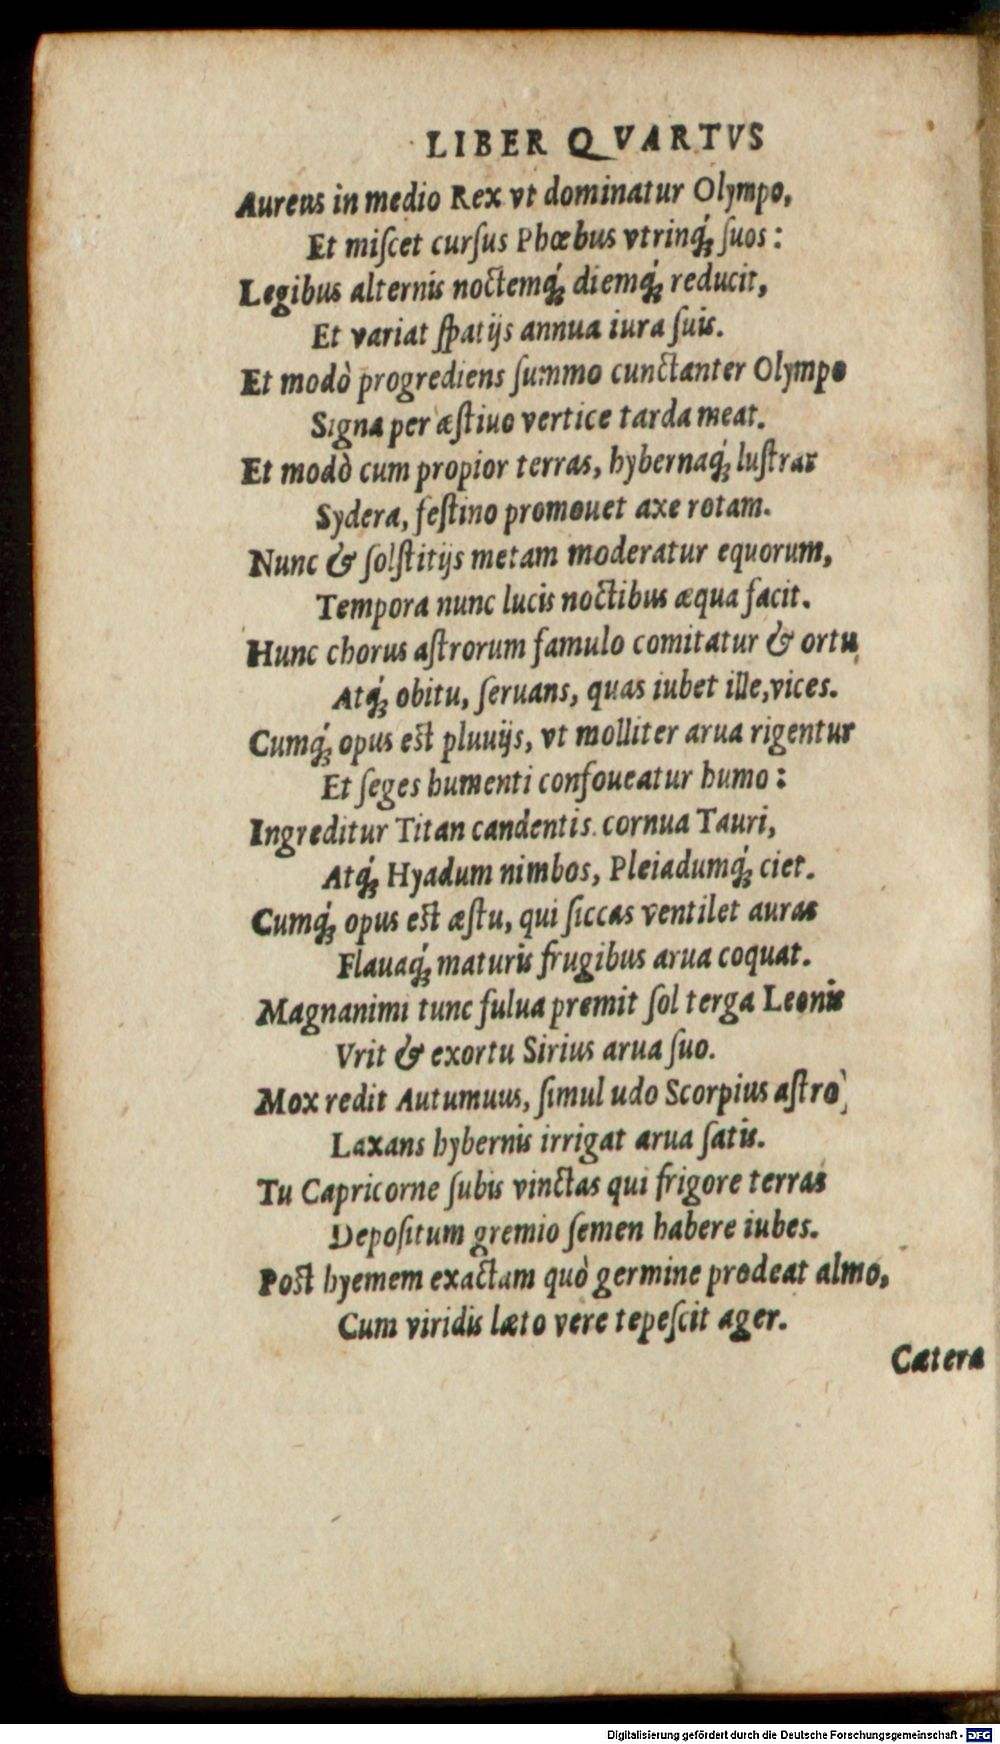 LIBER QVARTVS
Aureus in medio Rex vt dominatur Olympo,
Et miſcet curſus Phœbus vtrinq́; ſuos:
Legibus alternis noctemq́; diemq́; reducit,
Et variat ſpatijs annua iura ſuis.
Et modò progrediens ſummo cunctanter Olympo
Signa per æſtiuo vertice tarda meat.
Et modò cum propior terras, hybernaq́; luſtrat
Sydera, feſtino promouet axe rotam.
Nunc & ſolſtitijs metam moderatur equorum,
Tempora nunc lucis noctibus æqua facit.
Hunc chorus aſtrorum famulo comitatur & ortu
Atq́; obitu, ſeruans, quas iubet ille,vices.
Cumq́; opus est pluuijs, vt molliter arua rigentur
Et ſeges humenti confoueatur humo:
Ingreditur Titan candentis cornua Tauri,
Atq́; Hyadum nimbos, Pleiadumq́; ciet.
Cumq́; opus est æſtu, qui ſiccas ventilet auras
Flauaq́; maturis frugibus arua coquat.
Magnanimi tunc fulua premit ſol terga Leonis
Vrit & exortu Sirius arua ſuo.
Mox redit Autumuus, ſimul udo Scorpius aſtro,
Laxans hybernis irrigat arua ſatis.
Tu Capricorne ſubis vinctas qui frigore terras
Depoſitum gremio ſemen habere iubes.
Post hyemem exactam quò germine prodeat almo,
Cum viridis læto vere tepeſcit ager.
Cætera
Digitalisierung gefördert durch die Deutsche Forschungsgemeinschaft - DFG